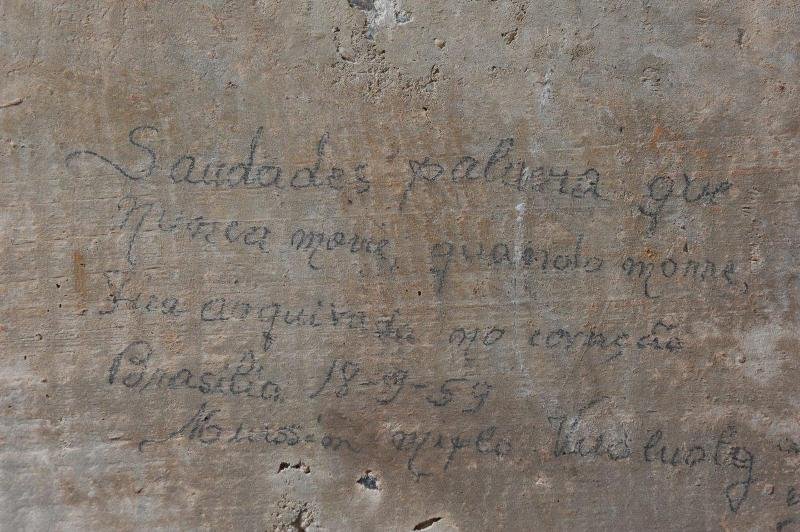 Saudades palavra que
Nunca morre, quando morre,
Fica arquivada no coração
Brasília 18-9-59